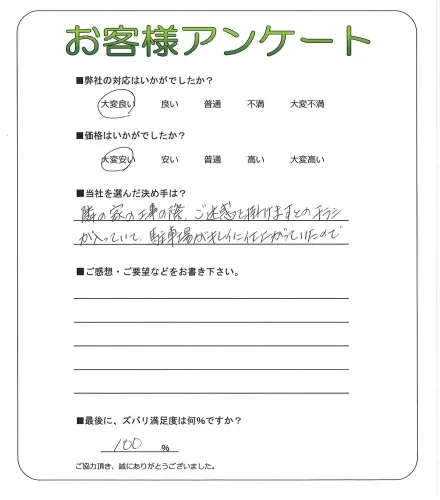 お客様アンケート
■弊社の対応はいかがでしたか？
大変良い 良い 普通 不満 大変不満
■価格はいかがでしたか？
大変安い 安い 普通 高い 大変高い
■当社を選んだ決め手は？
隣の家の工事の際、ご迷惑を掛けますとのチラシ
が入っていて、駐車場がキレイに仕上がっていたので
■ご感想・ご要望などをお書き下さい。
■最後に、ズバリ満足度は何％ですか？
100 ％
ご協力頂き、誠にありがとうございました。